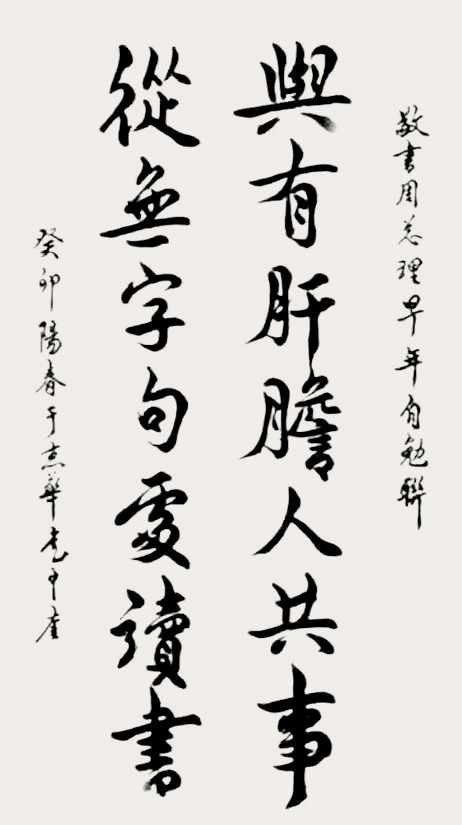 敬書周总理早年自勉聯
與有肝膽人共事
從無字句處讀書
癸卯陽春于志華